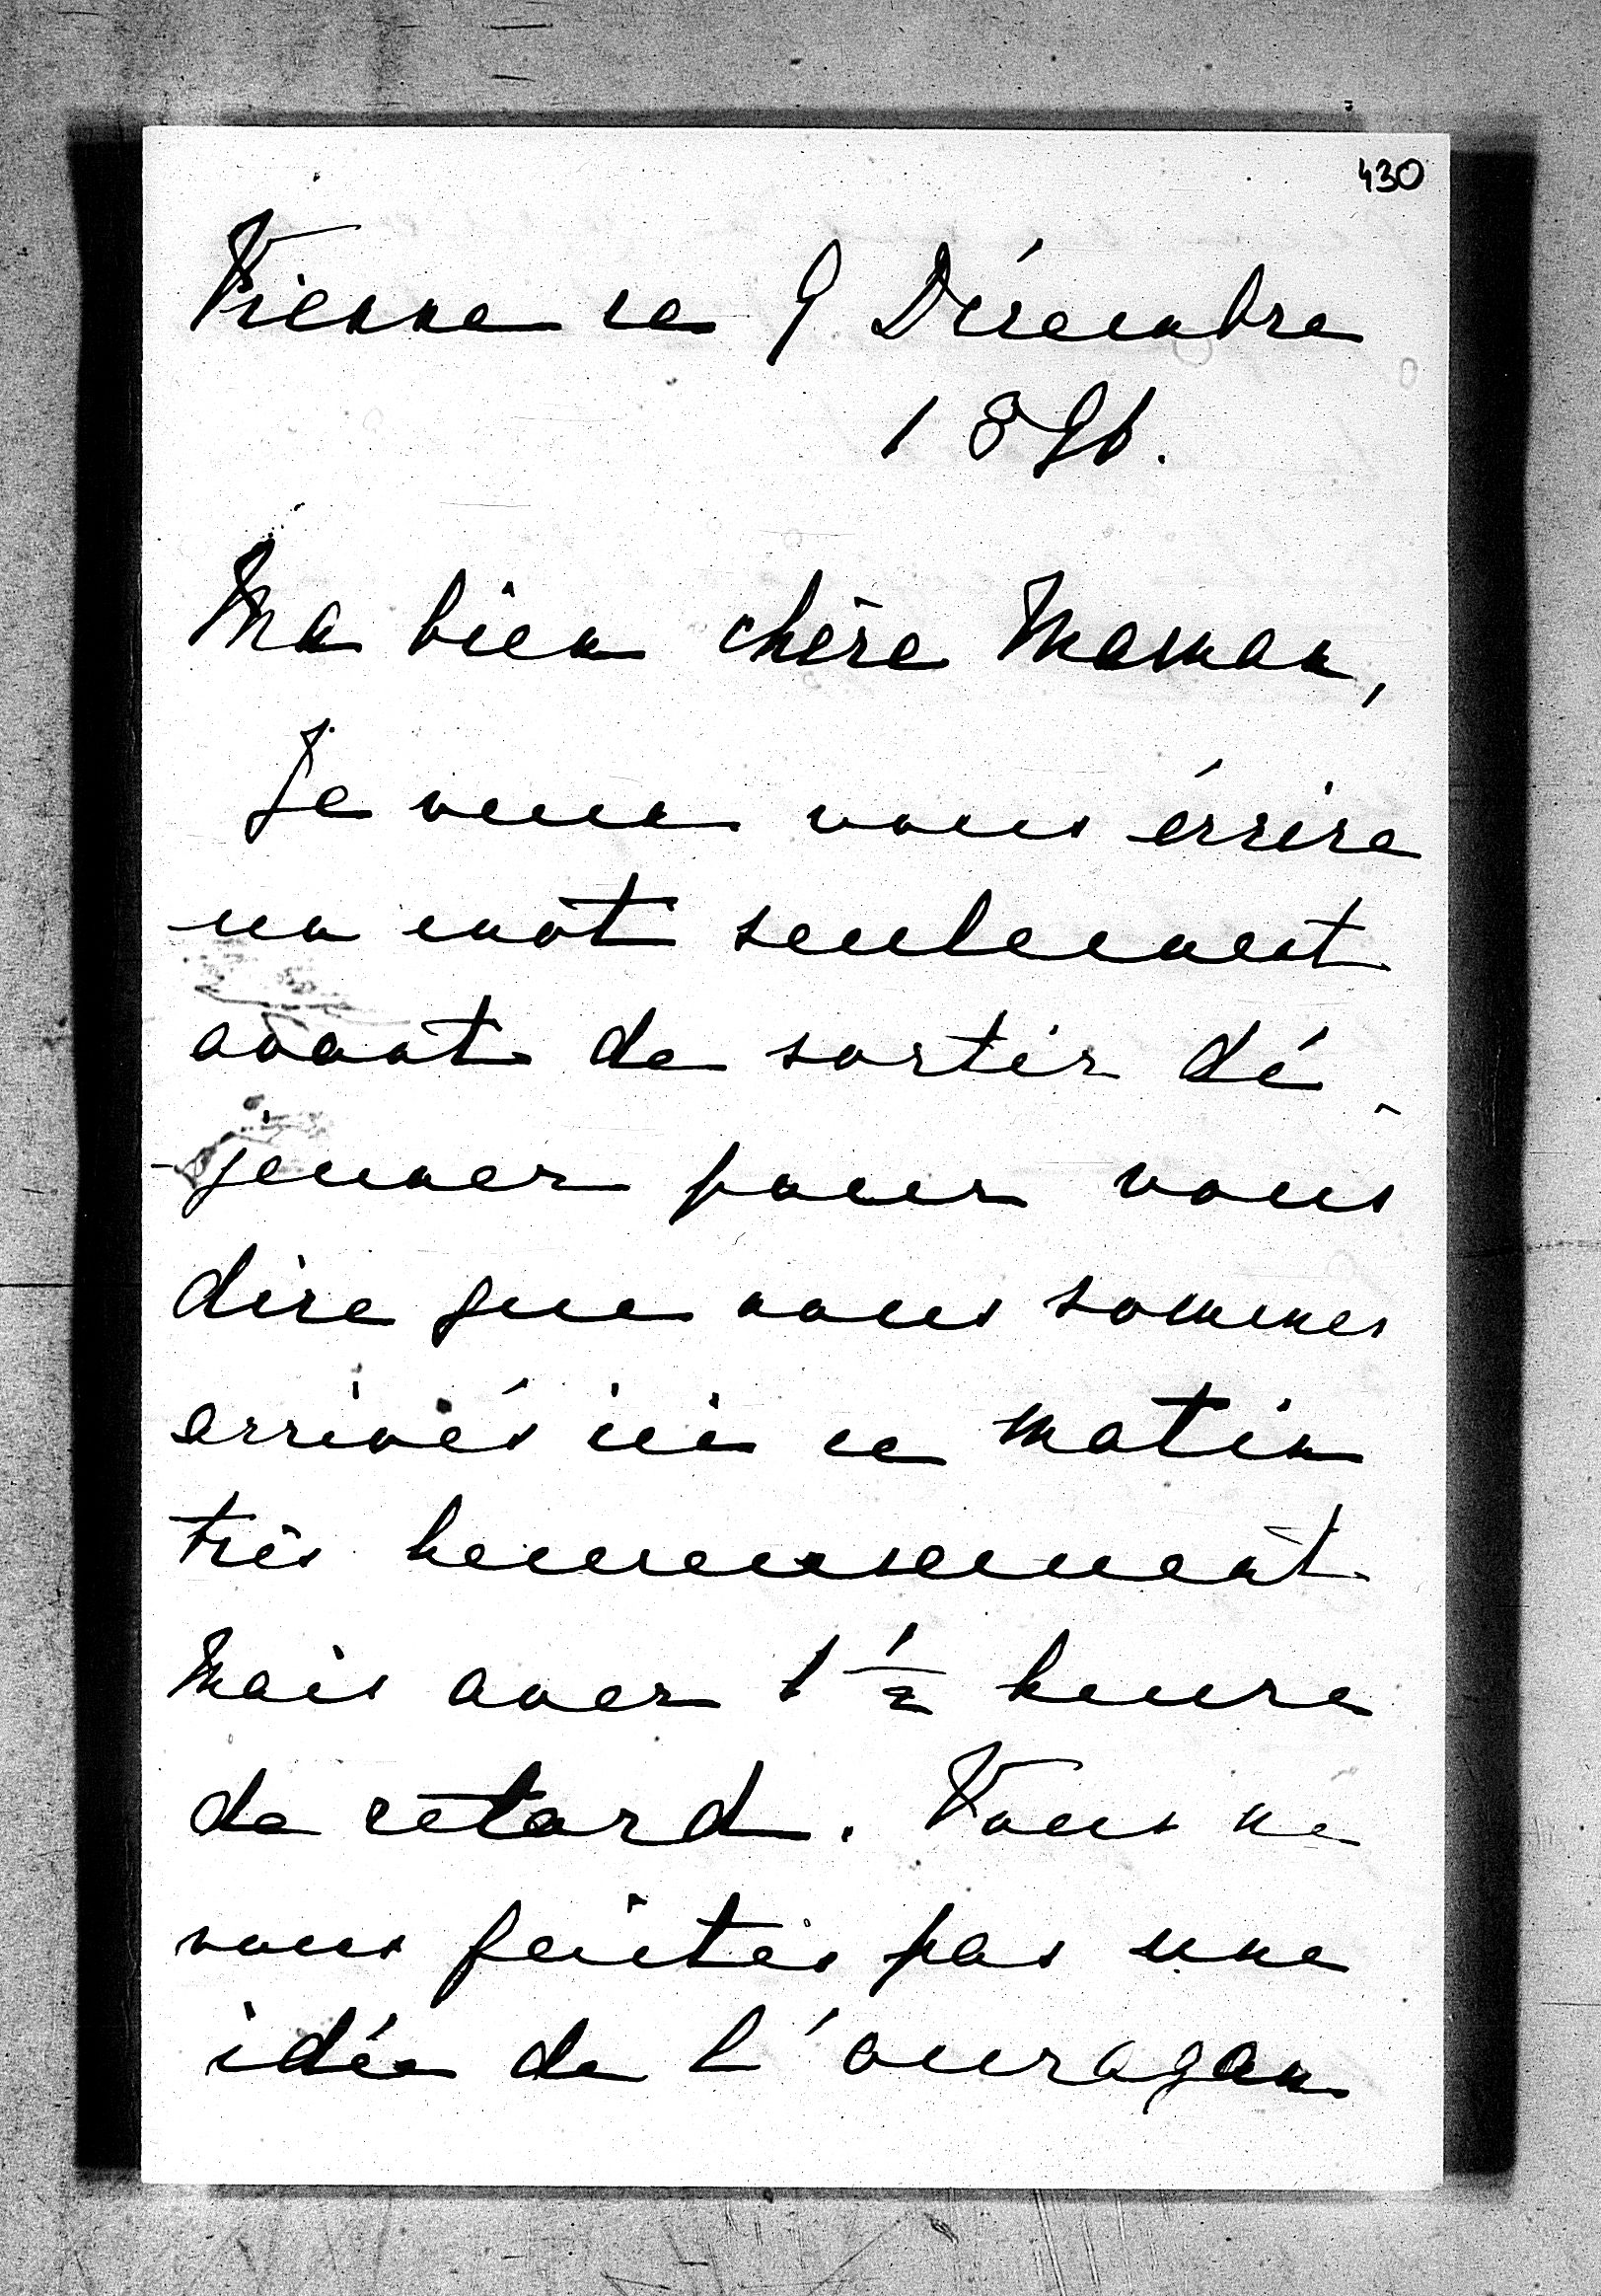 430
Vienne ce 9 Décembre
1896.
Ma bien chère Maman,
Je veux vous écrire
un mot seulement
avant de sortir dé-
-jeuner pour vous
dire que nous sommes
arrivés ici ce matin
très heureusement
Mais avec 1 ½ heure
de retard. Vous ne
vous faites pas une
idée de l'ouragan